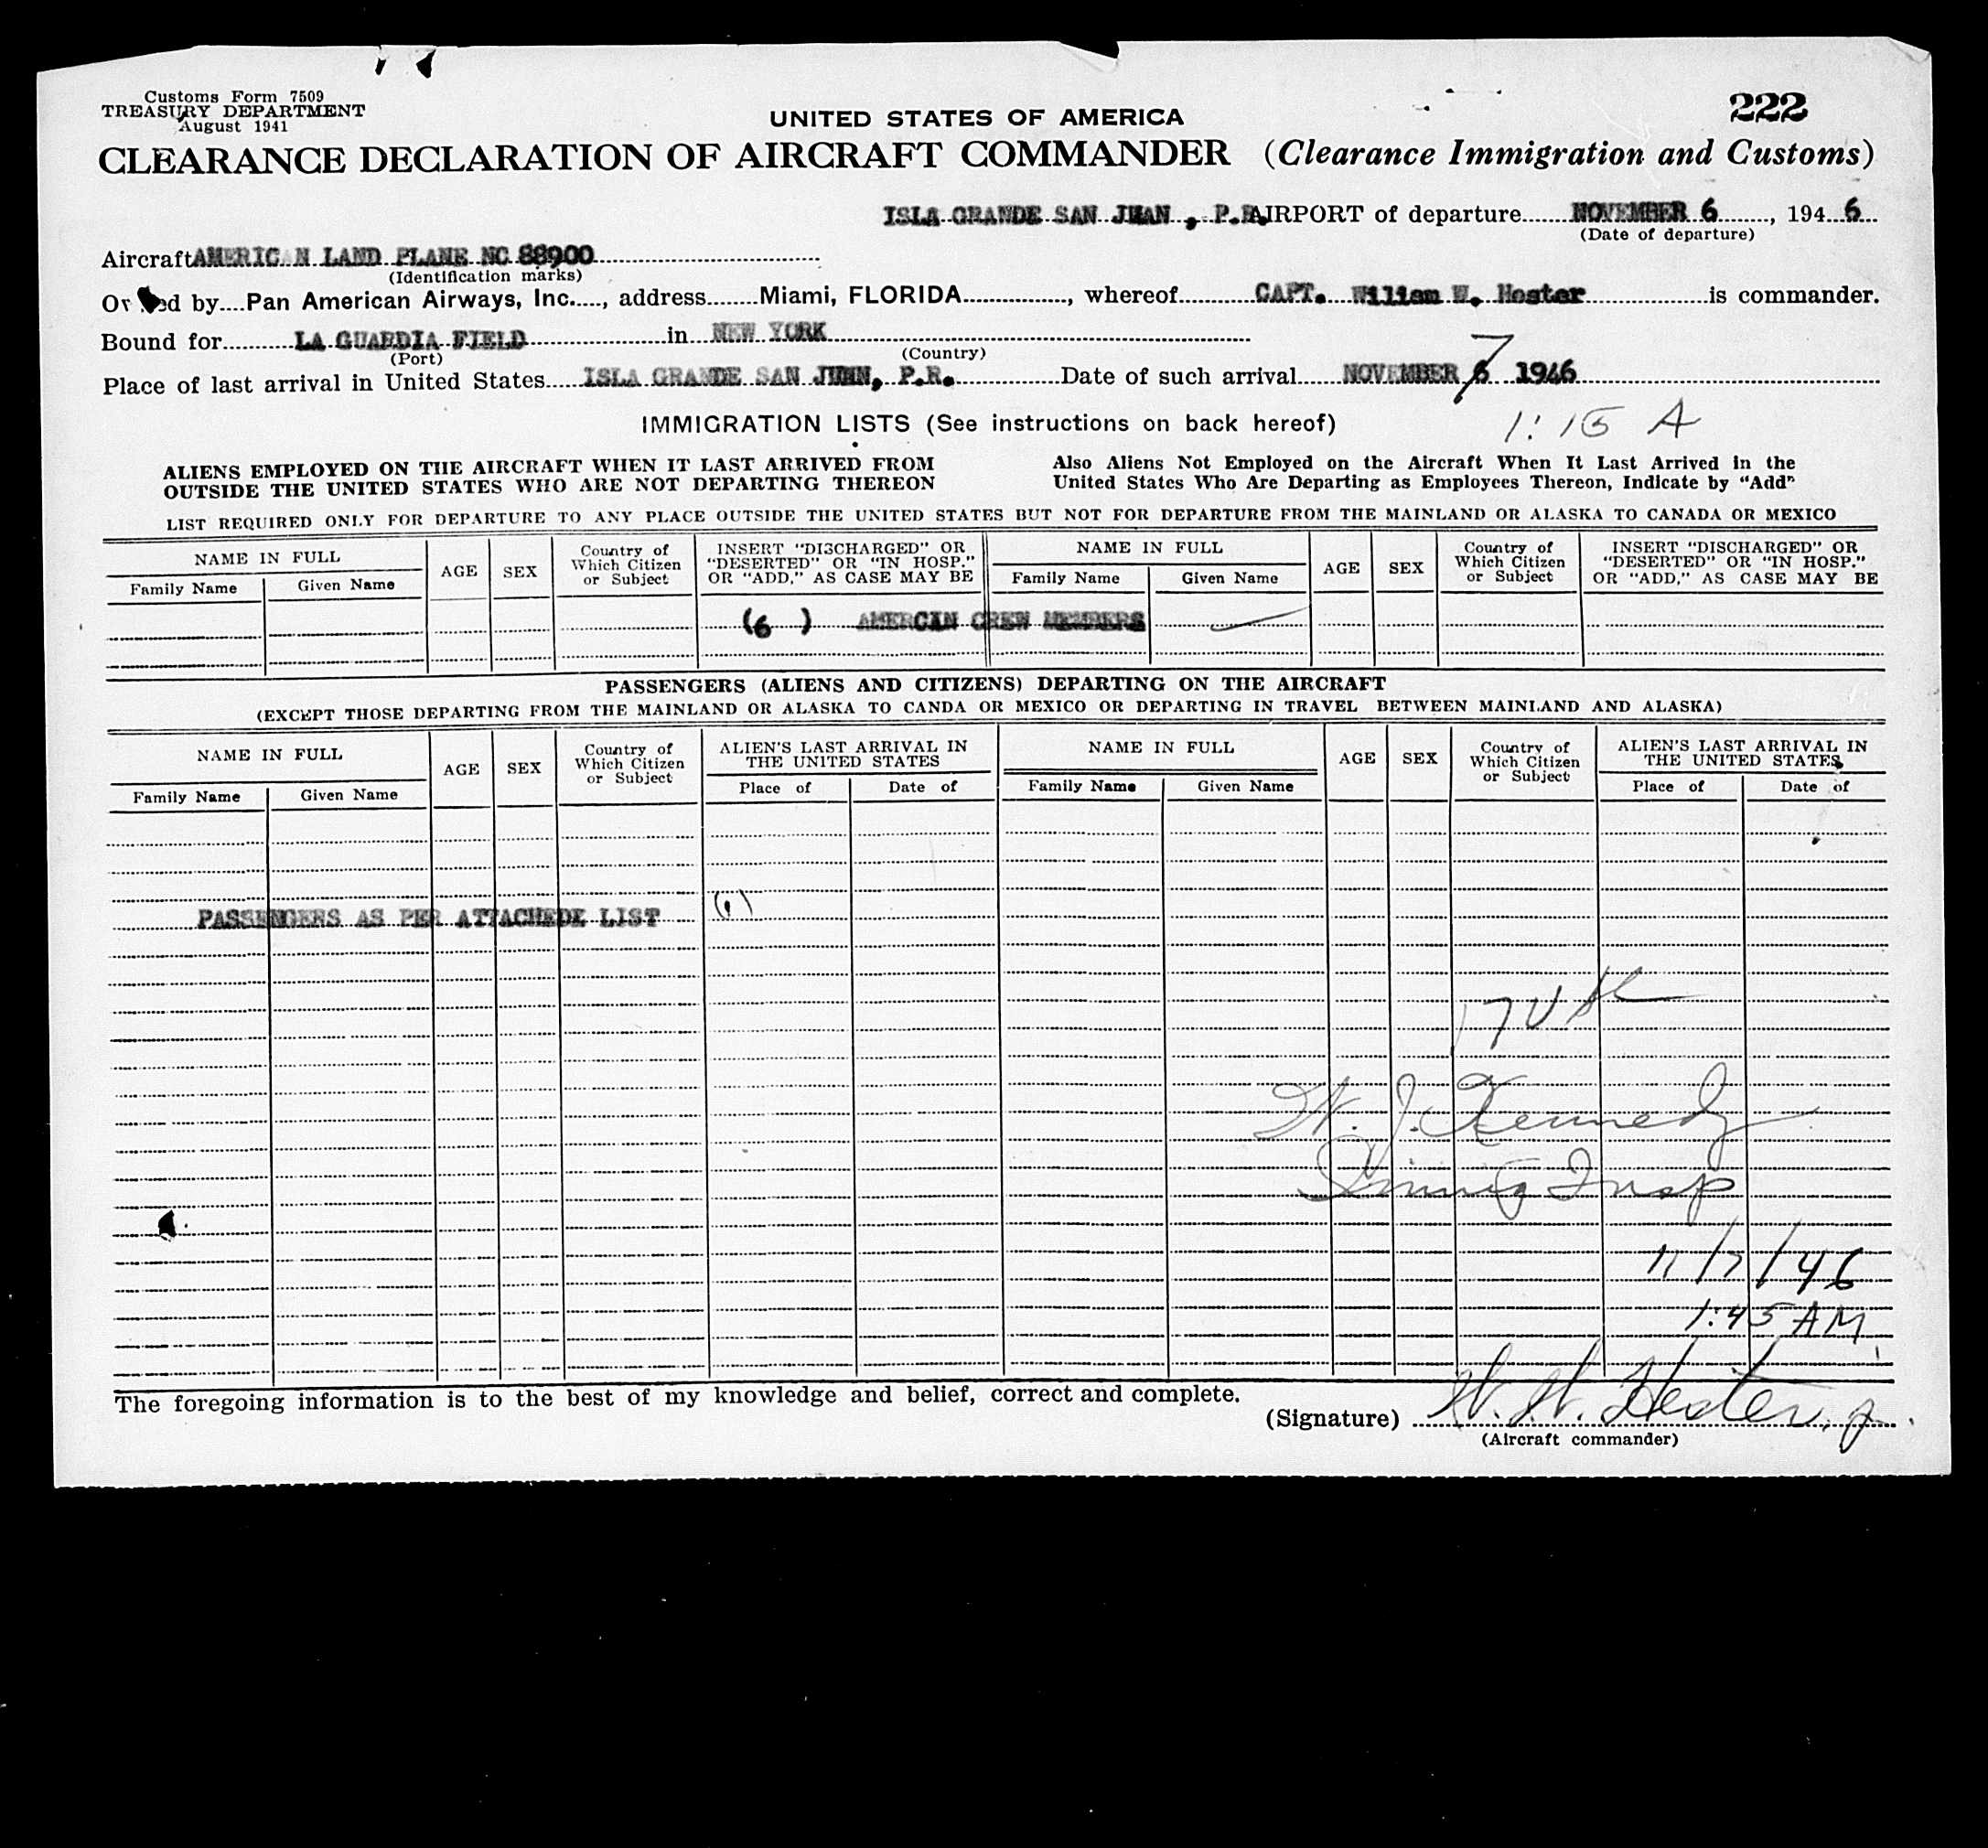 Customs Form 7509
TREASURY DEPARTMENT
August 1941
222
UNITED STATES OF AMERICA
CLEARANCE DECLARATION OF AIRCRAFT COMMANDER (Clearance Immigration and Customs)
ISLA GRANDE SAN JUAN, P.R. AIRPORT of departure NOVEMBER 6, 194 6
(Date of departure)
Aircraft AMERICAN LAND PLANE NC 88900
(Identification marks)
ed by Pan American Airways, Inc., address Miami, FLORIDA, whereof CAPT. William W. Hester is commander.
Bound for LA GUARDIA FIELD in NEW YORK
(Port) (Country)
7
Place of last arrival in United States ISLA GRANDE SAN JUAN, P.R. Date of such arrival NOVEMBER 6 1946
IMMIGRATION LISTS (See instructions on back hereof) 1:15 A
ALIENS EMPLOYED ON THE AIRCRAFT WHEN IT LAST ARRIVED FROM
OUTSIDE THE UNITED STATES WHO ARE NOT DEPARTING THEREON
Also Aliens Not Employed on the Aircraft When It Last Arrived in the
United States Who Are Departing as Employees Thereon, Indicate by "Add"
LIST REQUIRED ONLY FOR DEPARTURE TO ANY PLACE OUTSIDE THE UNITED STATES BUT NOT FOR DEPARTURE FROM THE MAINLAND OR ALASKA TO CANADA OR MEXICO
NAME IN FULL
Family Name Given Name
AGE
SEX
Country of
Which Citizen
or Subject
INSERT "DISCHARGED" OR
"DESERTED" OR "IN HOSP."
OR "ADD," AS CASE MAY BE
NAME IN FULL
Family Name Given Name
AGE
SEX
Country of
Which Citizen
or Subject
INSERT "DISCHARGED" OR
"DESERTED" OR "IN HOSP."
OR "ADD," AS CASE MAY BE
(6 ) AMERCIN CREW MEMBERS
PASSENGERS (ALIENS AND CITIZENS) DEPARTING ON THE AIRCRAFT
(EXCEPT THOSE DEPARTING FROM THE MAINLAND OR ALASKA TO CANDA OR MEXICO OR DEPARTING IN TRAVEL BETWEEN MAINLAND AND ALASKA)
NAME IN FULL
Family Name Given Name
AGE
SEX
Country of
Which Citizen
or Subject
ALIEN'S LAST ARRIVAL IN
THE UNITED STATES
Place of Date of
NAME IN FULL
Family Name Given Name
AGE
SEX
Country of
Which Citizen
or Subject
ALIEN'S LAST ARRIVAL IN
THE UNITED STATES
Place of Date of
PASSENGERS AS PER ATTACHEDE LIST
W. J. Kennedy
Immig Insp
11/7/46
1:45 AM
The foregoing information is to the best of my knowledge and belief, correct and complete.
(Signature) W. W. Hester, Jr.
(Aircraft commander)